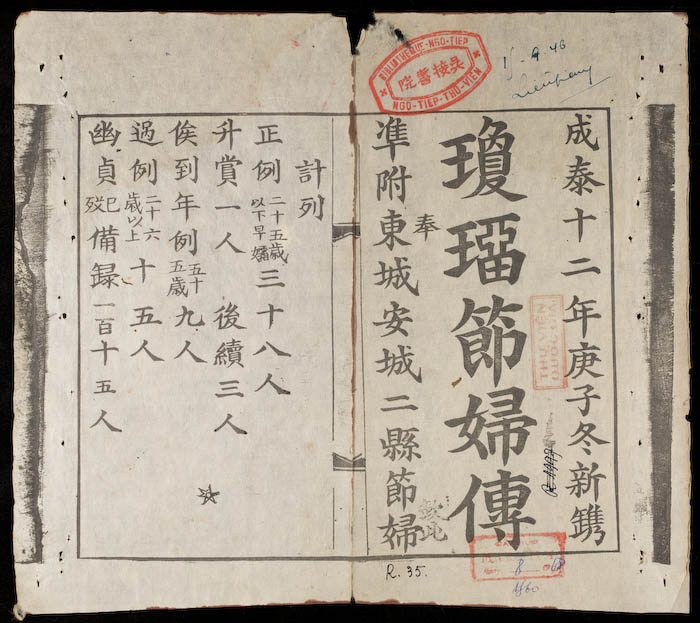 成泰十二年庚子冬新鐫
瓊瑠節婦傳
奉
準附東城安城二縣節婦
計列
正例二十五歲以下早孀三十八人
升賞一人 後續三人
俟到年例五十五歲九人
過例二十六歲以上十五人
幽貞已歿備録一百十五人
BIBLIOTHEQUE-NGO-TIEP
吳接書院
NGO-TIEP-THO-VIEN
R.35.